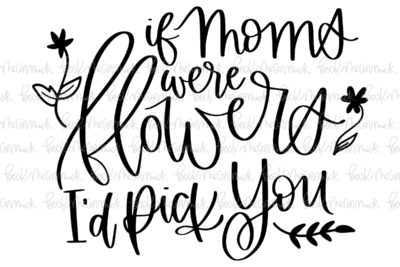 if Moms
were
flowers
I'd pick You